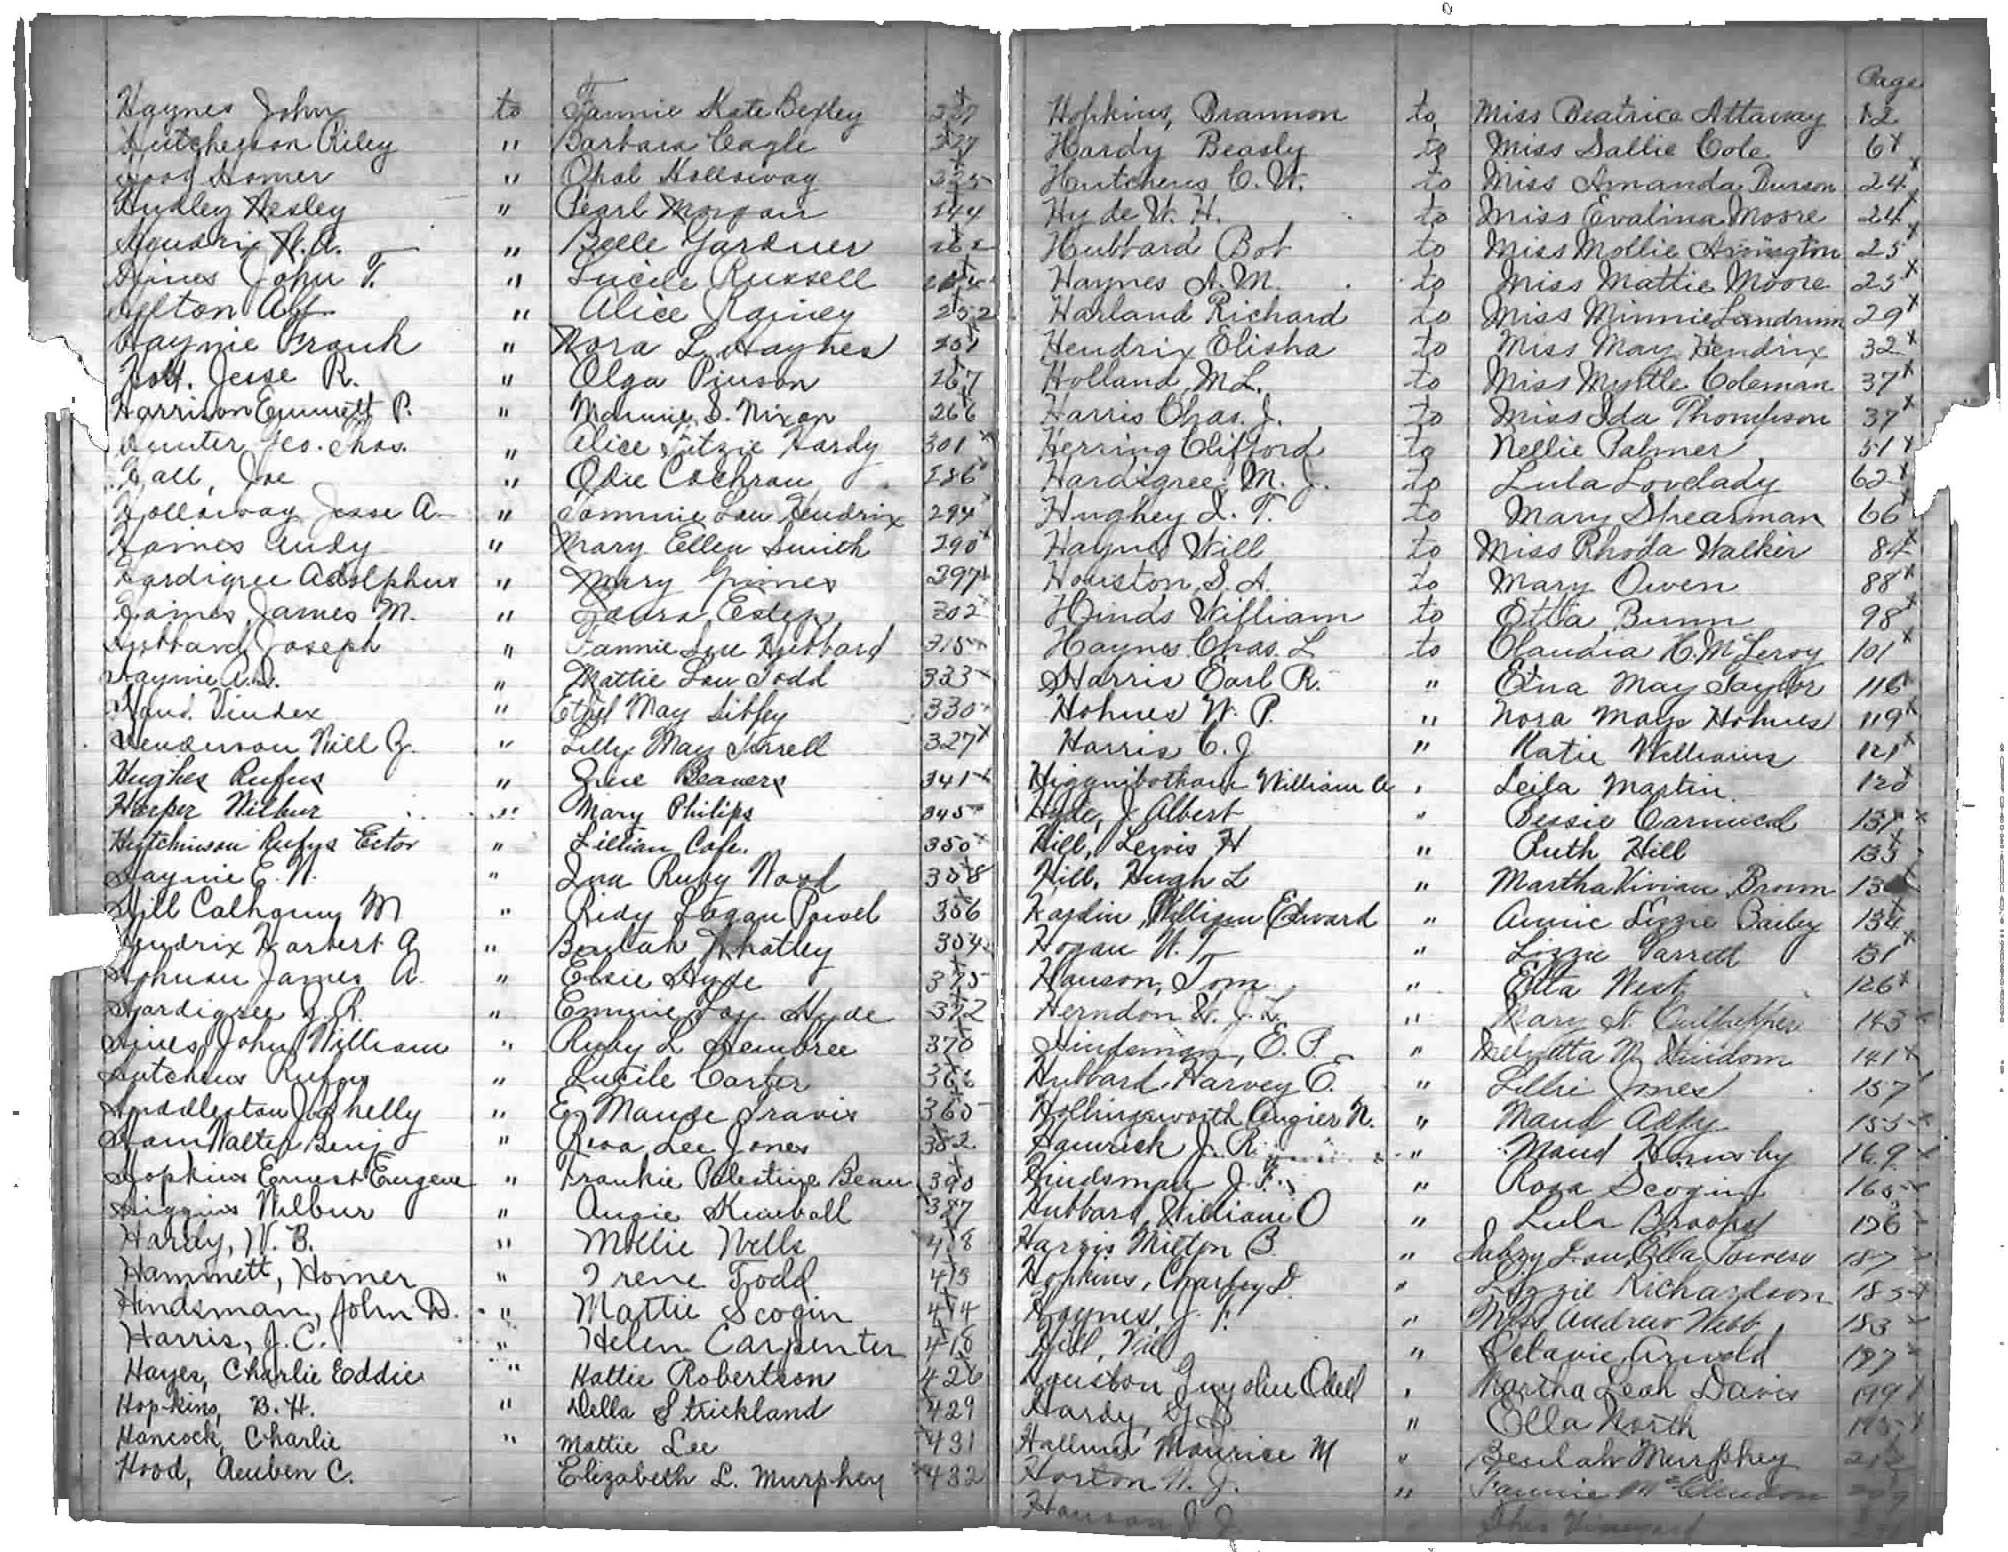 Haynes John to Fannie Kate Bexley 227
Hutcheson Riley " Barbara Cagle 227
Homer " Opal Holloway 225
Hudley Wesley " Pearl Morgan 244
Hendrix R.A. " Belle Gardner 262
Hines John T. " Lucile Russell
Hilton A.J. " Alice Rainey 252
Haynie Frank " Nora L. Haynes 251
Holt. Jesse R. " Olga Pinson 267
Harrison Emmett P. " Mamie S. Nixon 266
Hunter Geo. Chas. " Alice Fitzie Hardy 301
Hall, Joe " Odie Cochran 286
Holloway Jesse A. " Tommie Lou Hendrix 294
Haines Andy " Mary Ellen Smith 290
Hardigree Adolphus " Mary Grimes 297
Haines, James M. " Laura Estep 302
Hubbard Joseph " Fannie Lou Hubbard 315
Haynie A.D. " Mattie Lou Todd 333
Hand. Vindex " Ethel May Sibley 330
Henderson Will G. " Lilly May Terrell 327
Hughes Rufus " Gene Beavers 341
Harper Wilbur " Mary Philips 345
Hutchinson Rufus Ector " Lillian Cofe. 350
Haynie E. W. " Ina Ruby Wood 358
Hill Calhoun M " Ridy Logan Powel 356
Hendrix Harbert G " Beulah Whatley 354
Hohnan James A. " Elsie Hyde 375
Hardigree J. R. " Emmie Lou Hyde 372
Hines John William " Ruby L Hembree 370
Hutchens Rufus " Lucile Carter 366
Huddleston J. Shelly " E. Maude Travis 365
Ham Walter Benj " Reva Lee Jones 382
Hopkins Ernest Eugene " Frankie Palestine Bean 390
Higgins Wilbur " Angie Kimball 387
Hardy, W. B. " Mollie Wells 408
Hammett, Homer " Irene Todd 413
Hindsman, John D. " Mattie Scogin 414
Harris, J. C. " Helen Carpenter 418
Hayes, Charlie Eddie " Hattie Robertson 426
Hopkins, B. H. " Della Strickland 429
Hancock, Charlie " Mattie Lee 431
Hood, Reuben C. Elizabeth L. Murphey 432
Page
Hopkins, Brannon to Miss Beatrice Attaway 12
Hardy Beasly to Miss Sallie Cole 6x
Hutchens C. W. to Miss Amanda Burson 24x
Hyde W. H. to Miss Evalina Moore 24x
Hubbard Bob to Miss Mollie Arrington 25x
Haynes A. M. to Miss Mattie Moore 25x
Harland Richard to Miss Minnie Landrum 29x
Hendrix Elisha to Miss May Hendrix 32x
Holland M L. to Miss Myrtle Coleman 37x
Harris Chas. J. to Miss Ida Thompson 37x
Herring Clifford to Nellie Palmer 51x
Hardigree M. J. to Lula Lovelady 62x
Hughey I. T. to Mary Shearman 66x
Haynes Will to Miss Rhoda Walker 84x
Houston, S. A. to Mary Owen 88x
Hinds William to Etta Bunn 98x
Haynes Chas. L to Claudia H. McLeroy 101x
Harris Earl R. " Edna May Taylor 116x
Holmes W. P. " Nora Mays Holmes 119x
Harris C. J " Katie Williams 121x
Higginbotham William A " Leila Martin 120
Hyde, J Albert Bessie Carmical 137x
Hill, Lewis H " Ruth Hill 135
Hill, Hugh L " Martha Vivian Brown
Hardin, William Edward " Annie Lizzie Bailey 134
Hogan W. T. " Lizzie Parrott 131x
Hanson, Tom " Etta West 126x
Herndon W. J. L. " Mary N. Culpepper 143
Hindsman, E. P. " Melvetta M. Windom 141x
Hubbard Harvey E. " Lillie Jones 157
Hollingsworth Augier N. " Maud Adly 155x
Hamrick J. R. " Maud Hornsby 169
Hindsman J. F. " Rosa Scogin 165
Hubbard William O " Lula Brooks 176
Harris Milton B. " Lou Ella Powers 187
Hopkins, Charley D. " Lizzie Richardson 185x
Haynes, J. F. " Miss Andrew Webb 183
Hill, Will " Octavie Arnold 197
Houston Guy Odell " Martha Leah Davis 199x
Hardy, " Ella North 195x
Hallum Maurice M " Beulah Murphey 212
Horton W. J. " Fannie McClendon 209
Hanson J J Vineyard